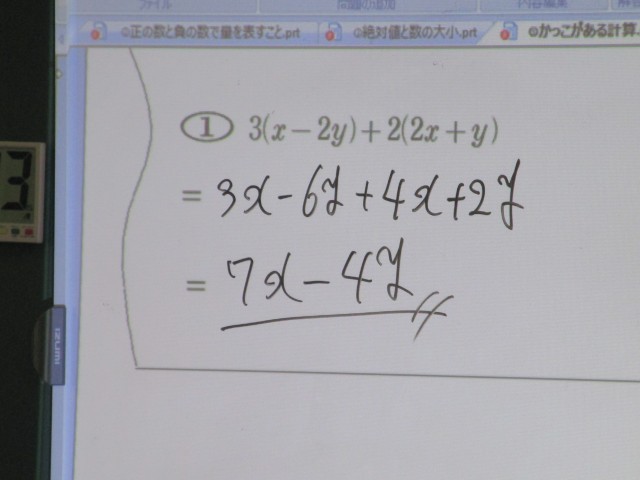 ファイル 問題の追加 内容編集
◎正の数と負の数で量を表すこと.prt ◎絶対値と数の大小.prt ◎かっこがある計算.
① 3(x−2y)+2(2x+y)
= 3x−6y+4x+2y
3.
= 7x−4y
IZUMI